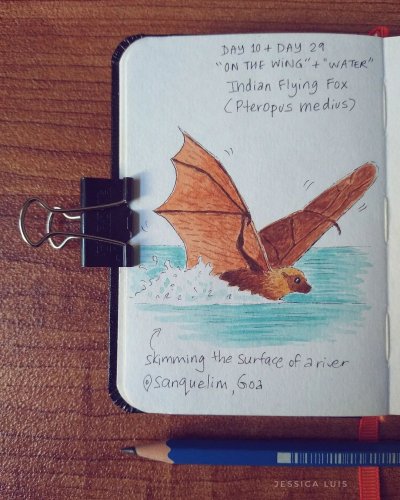 DAY 10 + DAY 29
"ON THE WING" + "WATER"
Indian Flying Fox
(Pteropus medius)
skimming the surface of a river
@sanquelim, Goa
JESSICA LUIS